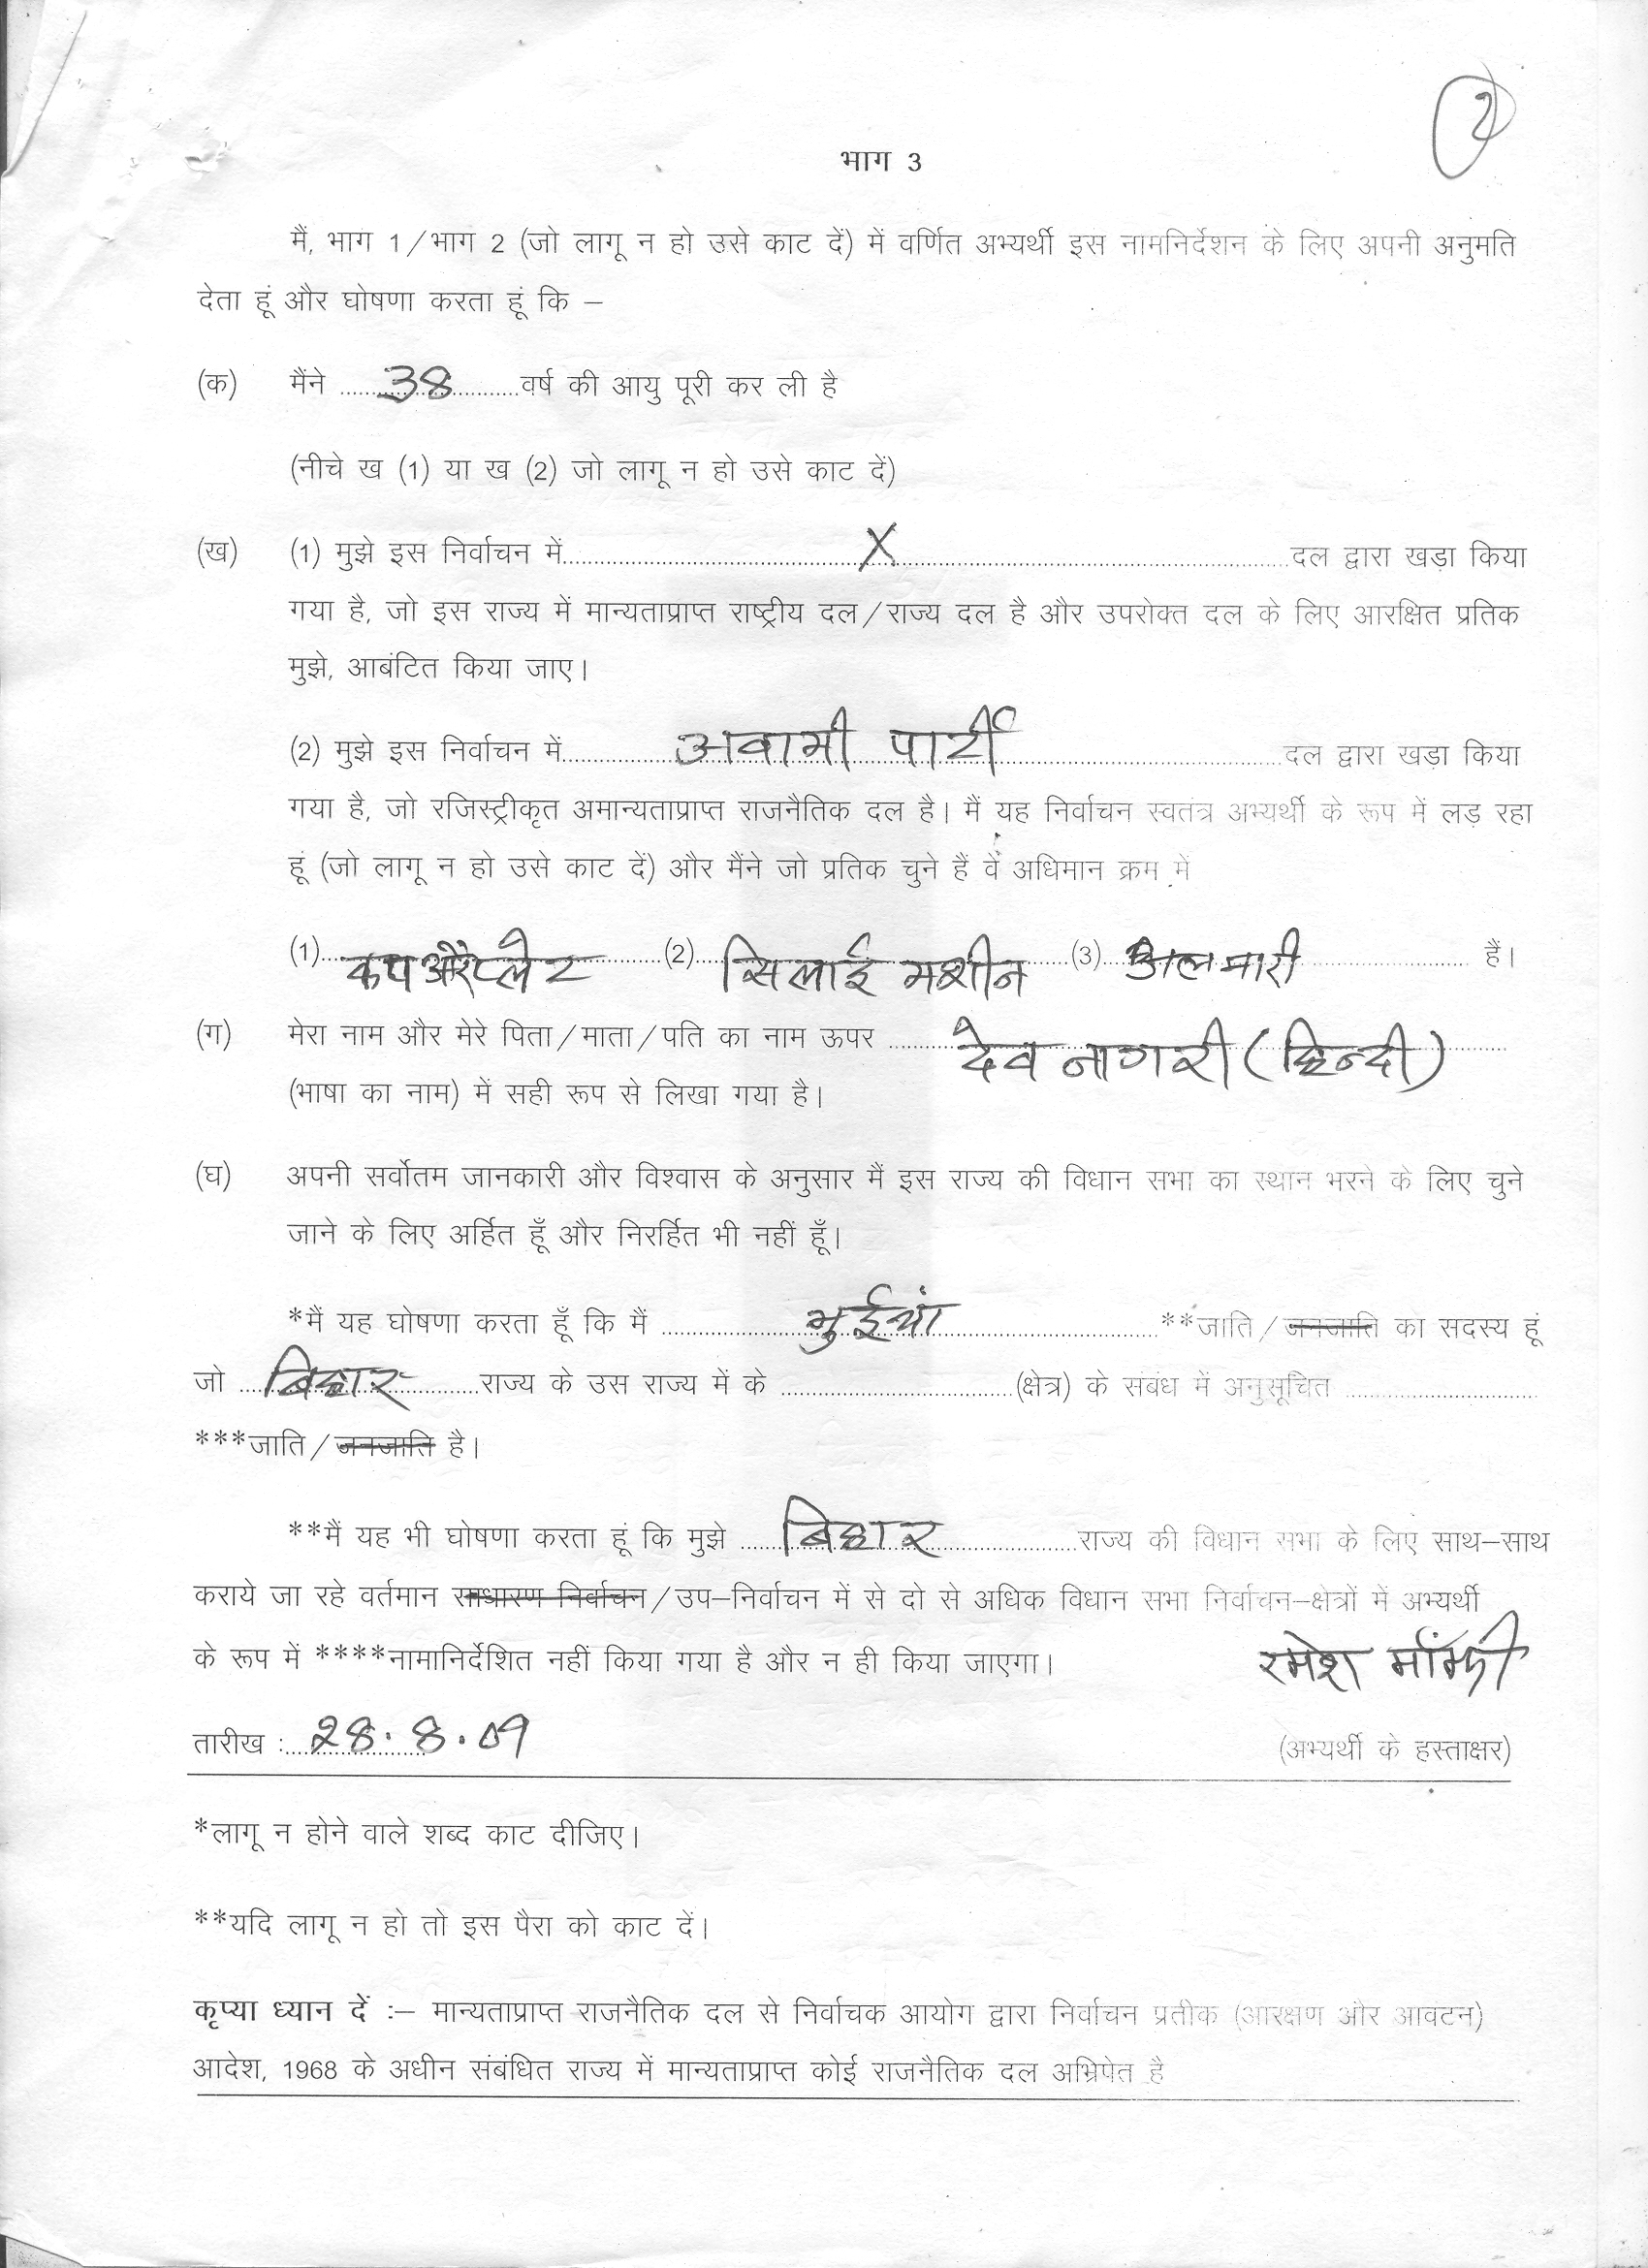 2
भाग 3
मैं, भाग 1/भाग 2 (जो लागू न हो उसे काट दें) में वर्णित अभ्यर्थी इस नामनिर्देशन के लिए अपनी अनुमति
देता हूं और घोषणा करता हूं कि –
(क) मैंने ........38........वर्ष की आयु पूरी कर ली है
(नीचे ख (1) या ख (2) जो लागू न हो उसे काट दें)
(ख) (1) मुझे इस निर्वाचन में........X........दल द्वारा खड़ा किया
गया है, जो इस राज्य में मान्यताप्राप्त राष्ट्रीय दल/राज्य दल है और उपरोक्त दल के लिए आरक्षित प्रतिक
मुझे, आबंटित किया जाए।
(2) मुझे इस निर्वाचन में........अवामी पार्टी........दल द्वारा खड़ा किया
गया है, जो रजिस्ट्रीकृत अमान्यताप्राप्त राजनैतिक दल है। मैं यह निर्वाचन स्वतंत्र अभ्यर्थी के रूप में लड़ रहा
हूं (जो लागू न हो उसे काट दें) और मैंने जो प्रतिक चुने हैं वे अधिमान क्रम में
(1) कप और प्लेट (2) सिलाई मशीन (3) अलमारी हैं।
(ग) मेरा नाम और मेरे पिता/माता/पति का नाम ऊपर ........देव नागरी (हिन्दी)
(भाषा का नाम) में सही रूप से लिखा गया है।
(घ) अपनी सर्वोतम जानकारी और विश्वास के अनुसार मैं इस राज्य की विधान सभा का स्थान भरने के लिए चुने
जाने के लिए अर्हित हूँ और निरर्हित भी नहीं हूँ।
*मैं यह घोषणा करता हूँ कि मैं ........भुईयां........**जाति/जनजाति का सदस्य हूं
जो ....बिहार........राज्य के उस राज्य में के ........(क्षेत्र) के संबंध में अनुसूचित ........
***जाति/जनजाति है।
**मैं यह भी घोषणा करता हूं कि मुझे ....बिहार........राज्य की विधान सभा के लिए साथ–साथ
कराये जा रहे वर्तमान साधारण निर्वाचन/उप–निर्वाचन में से दो से अधिक विधान सभा निर्वाचन–क्षेत्रों में अभ्यर्थी
के रूप में ****नामानिर्देशित नहीं किया गया है और न ही किया जाएगा। रमेश माँझी
तारीख :....28.8.09 (अभ्यर्थी के हस्ताक्षर)
*लागू न होने वाले शब्द काट दीजिए।
**यदि लागू न हो तो इस पैरा को काट दें।
कृप्या ध्यान दें :– मान्यताप्राप्त राजनैतिक दल से निर्वाचक आयोग द्वारा निर्वाचन प्रतीक (आरक्षण और आवटन)
आदेश, 1968 के अधीन संबंधित राज्य में मान्यताप्राप्त कोई राजनैतिक दल अभिप्रेत है